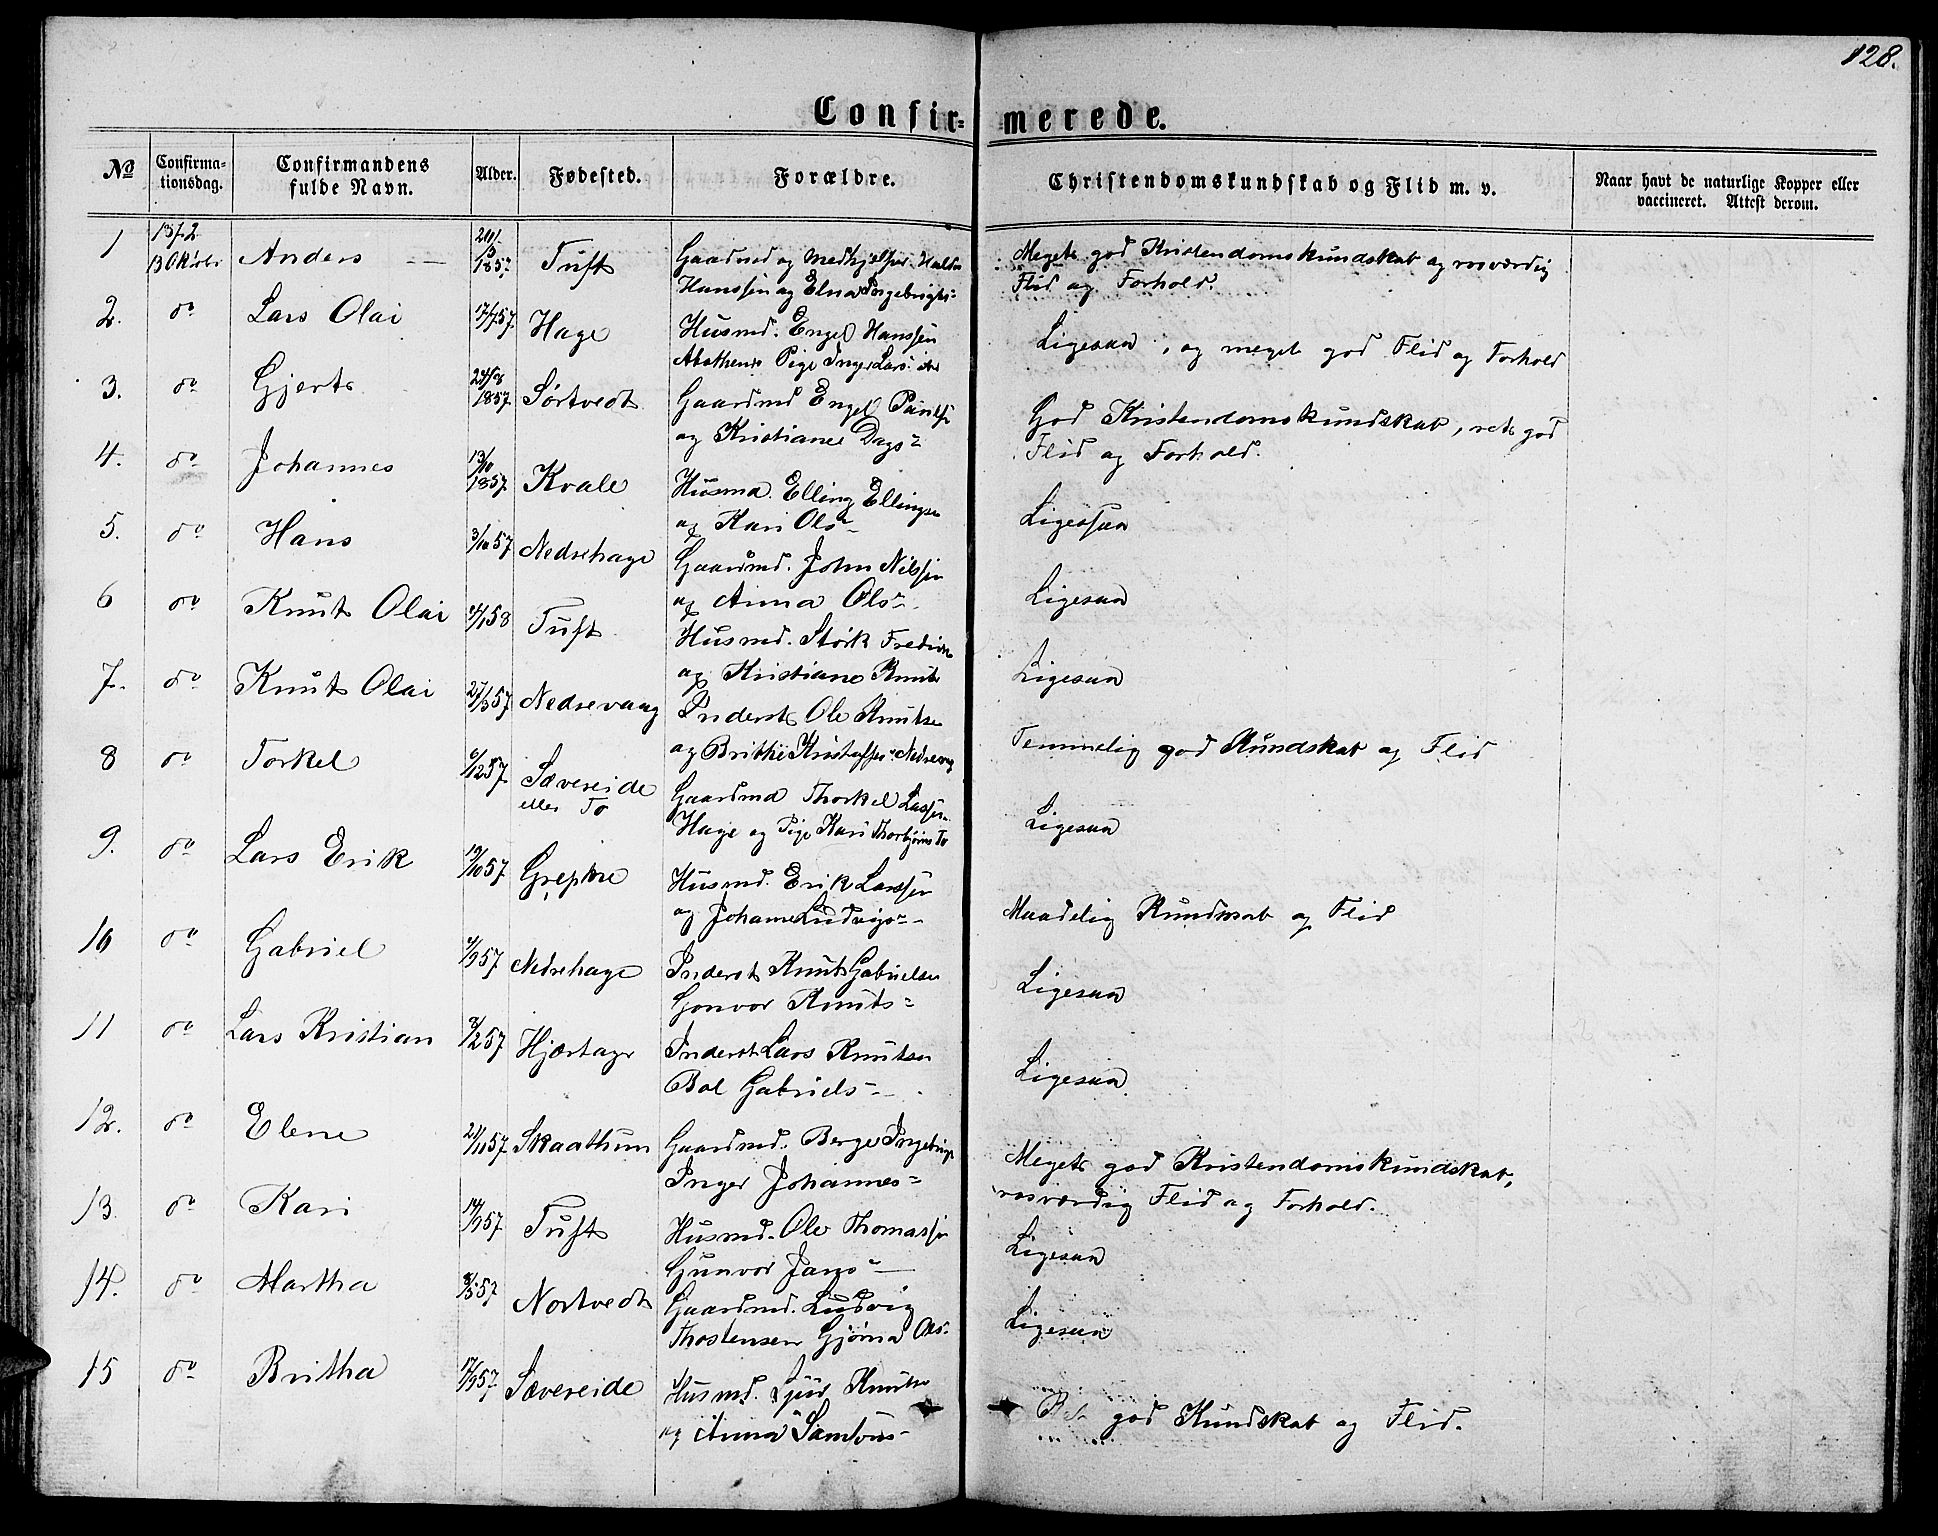 128.
Confir= merede.
No
Confirma-
tionsdag.
Confirmandens
fulde Navn.
Alder.
Fødested.
Forældre.
Christendomskundskab og Flid m. v.
Naar havt de naturlige Kopper eller
vaccineret. Attest derom.
1 1872 13 Oktobr Anders — 20/3 1857 Tuft Gaardmd og Medhjelper
Hanssen og Elna Ingebrigts=
Meget god Kristendomskundskab og rosværdig
Flid og Forhold.
2. do Lars Olai 17/7 57. Hage Husmd. Engel Hanssen
Pige Inger Lars
Ligesaa, og meget god Flid og Forhold
3. do Gjert 24/8 1857 Sørtvedt Gaardmd Engel Paulse
og Kristiane Dags=
God Kristendomskundskab, ret god
Flid og Forhold.
4. do Johannes 13/10 1857 Kvale Husmd. Elling Ellingse
og Kari Ols=
Ligesaa
5. do Hans 3/10 57 Nedrehage Gaardmd. John Nilssen
og Anna Ols=
Ligesaa
6 do Knut Olai 4/1 58 Tuft Husmd. Størk
og Kristiane Knuts
Ligesaa
7. do Knut Olai 27/3 57 Nedrevaag Inderst Ole Knutsen
og Brithe Kristoffers= Nedrevaag
Temmelig god Kundskab og Flid
8 do Torkel 6/12 57 Sævereide
eller Tø
Gaardmd Thorkel Lassen
Hage og Pige Kari Thorbjørns Tø
Ligesaa
9. do Lars Erik 19/10 57 Husmd. Erik Larssen
og Johanne Ludvigs=
Maadelig Kundskab og Flid
10 do Gabriel 4/9 57 Nedrehage Inderst Knut Gabrielsen
Gonvor Knuts=
Ligesaa
11 do Lars Kristian 9/2 57 Hjærtager Inderst Lars Knutsen
Bol Gabriels=
Ligesaa
12. do Elene 21/11 57 Skaathun Gaardmd. Berge Ingebrigs
Inger Johannes=
Meget god Kristendomskundskab,
rosværdig Flid og Forhold.
13. do Kari 14/9 57 Tuft Husmd. Ole Thomassen
Gunvor Jans=
Ligesaa
14. do Martha 8/5 57 Nortvedt Gaardmd. Ludvig
Thostensen Gjøria Ols=
Ligesaa
15 do Britha 17/9 57 Sævereide Husmd. Sjur Knutse
og Anna Samsons=
Ret god Kundskab og Flid.